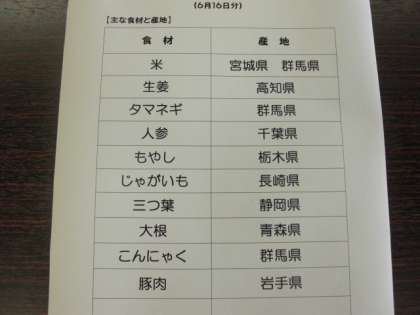 (6月16日分)
【主な食材と産地】
食材 産地
米 宮城県 群馬県
生姜 高知県
タマネギ 群馬県
人参 千葉県
もやし 栃木県
じゃがいも 長崎県
三つ葉 静岡県
大根 青森県
こんにゃく 群馬県
豚肉 岩手県